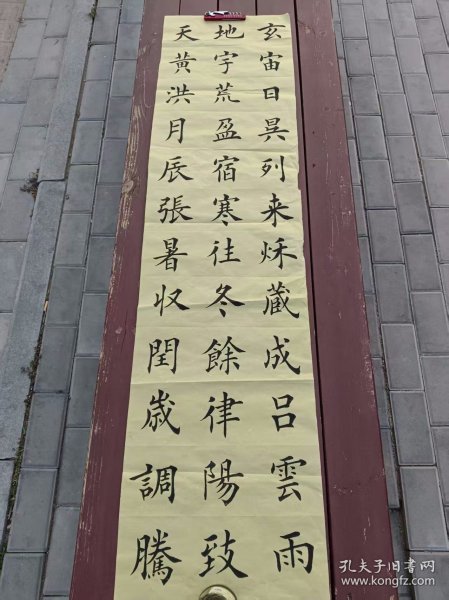 天地玄
黄宇宙
洪荒日
月盈昃
辰宿列
張寒来
暑往秋
収冬蔵
閏餘成
歳律吕
調陽雲
騰致雨
孔夫子旧书网
www.kongfz.com